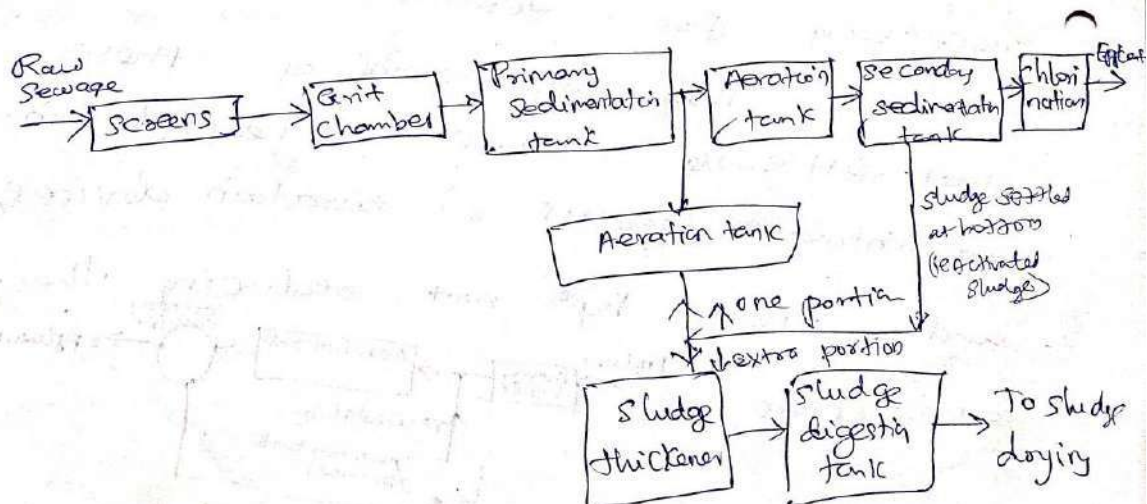 Raw
Sewage
Screens
Grit
Chamber
Primary
Sedimentation
tank
Aeration
tank
Seconday
sedimentatn
tank
Chlori
nation
Sludge settled
at bottom
(ie Activated
Sludge)
Aeration tank
one portion
extra portion
Sludge
thickener
Sludge
digestion
tank
To sludge
drying